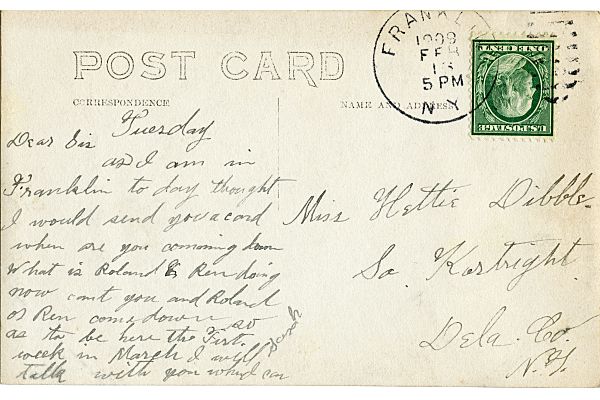 FRANKLI
1909
FEB
5 PM
N Y
U.S. POSTAGE
ONE CENT
POST CARD
CORRESPONDENCE
NAME AND ADDRESS
Tuesday
Dear Sis
as I am in
Franklin to day thought
I would send you a card
when are you comming down
What is Roland & Ren doing
now cant you and Roland
or Ren come down so
as to be here the First
week in March I will
talk with you when I can
Miss Hettie Dibble
So. Kortright
Dela. Co.
N.Y.